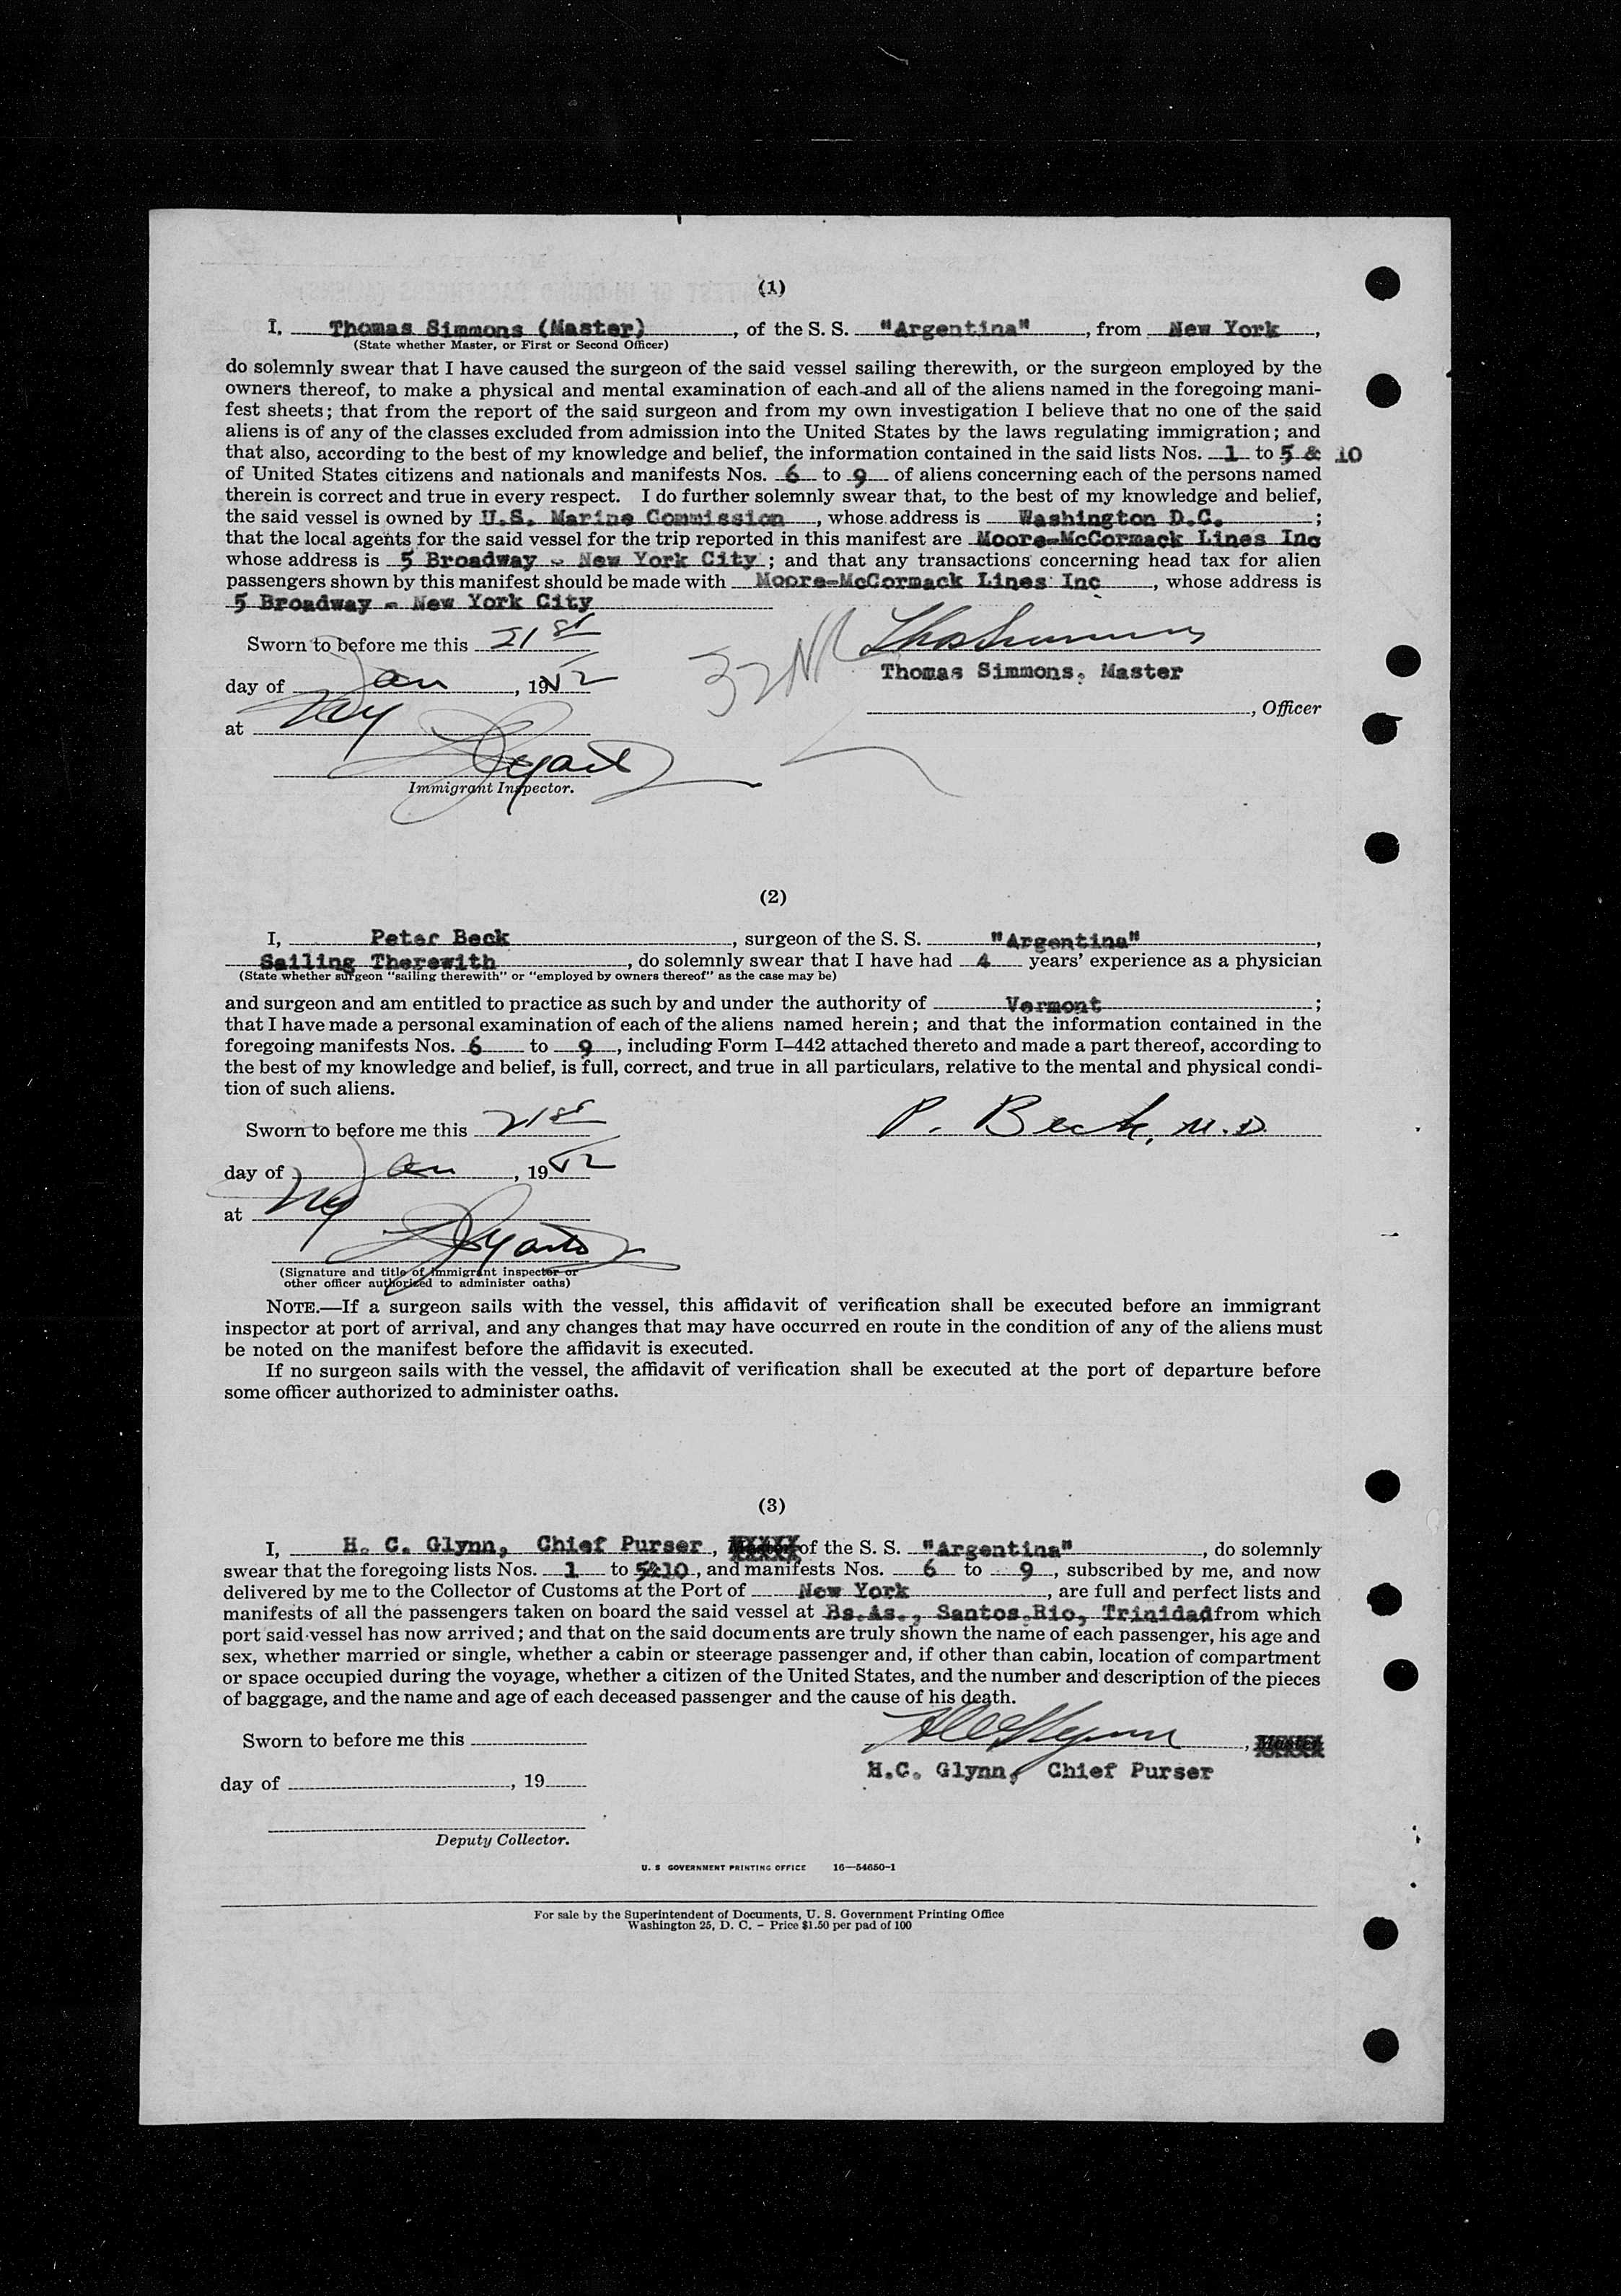 (1)
I, Thomas Simmons (Master), of the S. S. "Argentina", from New York,
(State whether Master, or First or Second Officer)
do solemnly swear that I have caused the surgeon of the said vessel sailing therewith, or the surgeon employed by the
owners thereof, to make a physical and mental examination of each and all of the aliens named in the foregoing mani-
fest sheets; that from the report of the said surgeon and from my own investigation I believe that no one of the said
aliens is of any of the classes excluded from admission into the United States by the laws regulating immigration; and
that also, according to the best of my knowledge and belief, the information contained in the said lists Nos. 1 to 5 & 10
of United States citizens and nationals and manifests Nos. 6 to 9 of aliens concerning each of the persons named
therein is correct and true in every respect. I do further solemnly swear that, to the best of my knowledge and belief,
the said vessel is owned by U.S. Marine Commission, whose address is Washington D.C.;
that the local agents for the said vessel for the trip reported in this manifest are Moore-McCormack Lines Inc
whose address is 5 Broadway - New York City; and that any transactions concerning head tax for alien
passengers shown by this manifest should be made with Moore-McCormack Lines Inc, whose address is
5 Broadway - New York City
Sworn to before me this 21st
Thos Simmons
Thomas Simmons, Master
day of Jan, 1952
, Officer
at NY
Immigrant Inspector.
(2)
I, Peter Beck, surgeon of the S. S. "Argentina",
Sailing Therewith, do solemnly swear that I have had 4 years' experience as a physician
(State whether surgeon "sailing therewith" or "employed by owners thereof" as the case may be)
and surgeon and am entitled to practice as such by and under the authority of Vermont;
that I have made a personal examination of each of the aliens named herein; and that the information contained in the
foregoing manifests Nos. 6 to 9, including Form I-442 attached thereto and made a part thereof, according to
the best of my knowledge and belief, is full, correct, and true in all particulars, relative to the mental and physical condi-
tion of such aliens.
Sworn to before me this 21st
P. Beck, M.D.
day of Jan, 1952
at NY
(Signature and title of immigrant inspector or
other officer authorized to administer oaths)
NOTE.—If a surgeon sails with the vessel, this affidavit of verification shall be executed before an immigrant
inspector at port of arrival, and any changes that may have occurred en route in the condition of any of the aliens must
be noted on the manifest before the affidavit is executed.
If no surgeon sails with the vessel, the affidavit of verification shall be executed at the port of departure before
some officer authorized to administer oaths.
(3)
I, H. C. Glynn, Chief Purser, of the S. S. "Argentina", do solemnly
swear that the foregoing lists Nos. 1 to 5&10, and manifests Nos. 6 to 9, subscribed by me, and now
delivered by me to the Collector of Customs at the Port of New York, are full and perfect lists and
manifests of all the passengers taken on board the said vessel at Bs.As., Santos,Rio, Trinidad from which
port said vessel has now arrived; and that on the said documents are truly shown the name of each passenger, his age and
sex, whether married or single, whether a cabin or steerage passenger and, if other than cabin, location of compartment
or space occupied during the voyage, whether a citizen of the United States, and the number and description of the pieces
of baggage, and the name and age of each deceased passenger and the cause of his death.
Sworn to before me this
H C Glynn, Master
H.C. Glynn, Chief Purser
day of , 19
Deputy Collector.
U. S GOVERNMENT PRINTING OFFICE 16—54650-1
For sale by the Superintendent of Documents, U. S. Government Printing Office
Washington 25, D. C. - Price $1.50 per pad of 100